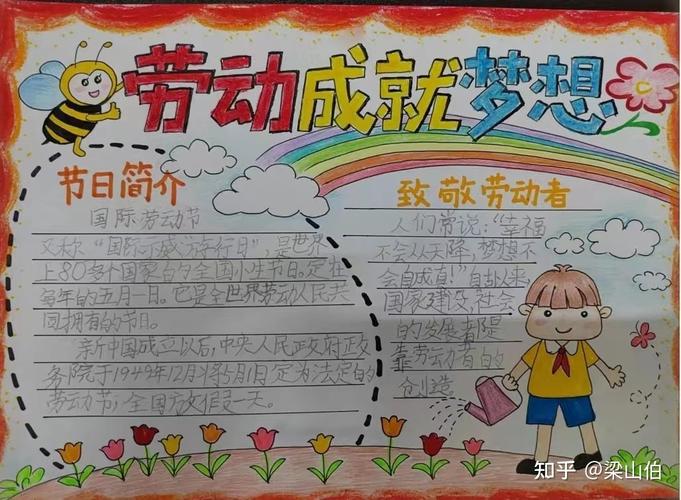 劳动成就梦想
节日简介
国际劳动节
又称“国际示威游行日”，是世界
上80多个国家的全国小生节日。定在
每年的五月一日。它是全世界劳动人民共
同拥有的节日。
新中国成立以后，中央人民政府政
务院于1949年12月将5月1日定为法定的
劳动节；全国放假一天。
致敬劳动者
人们常说：“幸福
不会从天降，梦想不
会自成真！”自古以来，
国家建设，社会
的发展都是
靠劳动者的
创造
知乎 @梁山伯